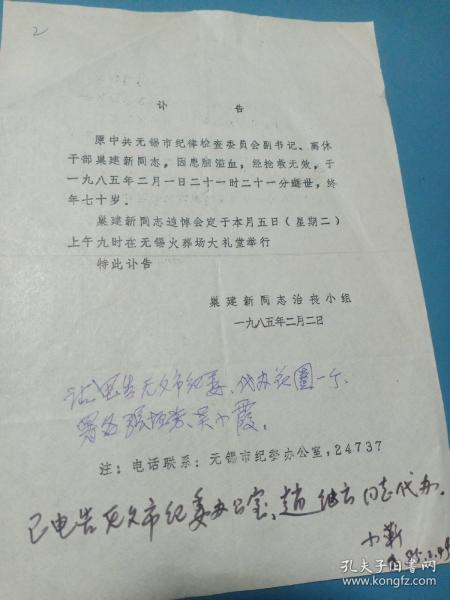 2
讣 告
原中共无锡市纪律检查委员会副书记、离休
干部巢建新同志，因患脑溢血，经抢救无效，于
一九八五年二月一日二十一时二十一分逝世，终
年七十岁。
巢建新同志追悼会定于本月五日（星期二）
上午九时在无锡火葬场大礼堂举行
特此讣告
巢建新同志治丧小组
一九八五年二月二日
电告无久市纪委、代办花圈一个、
署名 吴小霞。
注：电话联系：无锡市纪委办公室，24737
已电告无久市纪委办公室，赵 同志代办.
小靳
85.2.4
孔夫子旧书网